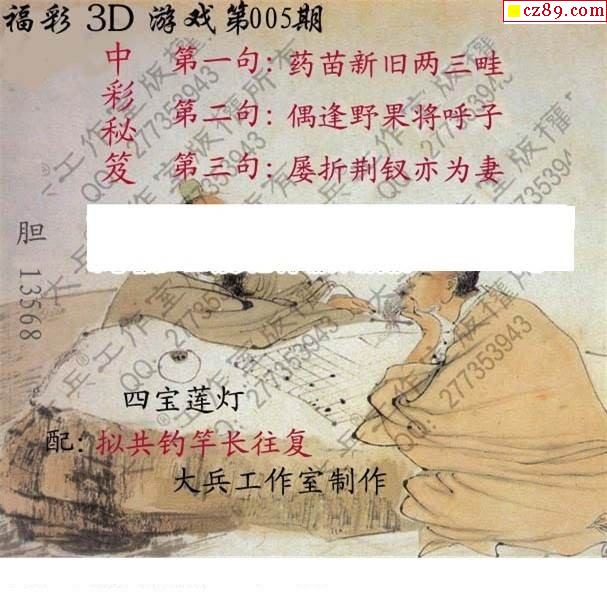 福彩 3D 游戏 第005期
cz89.com
中彩秘笈
第一句：药苗新旧两三畦
第二句：偶逢野果将呼子
第三句：屡折荆钗亦为妻
胆 13568
四宝莲灯
配：拟共钓竿长往复
大兵工作室制作
大兵®工作室版权所有
QQ：277353943